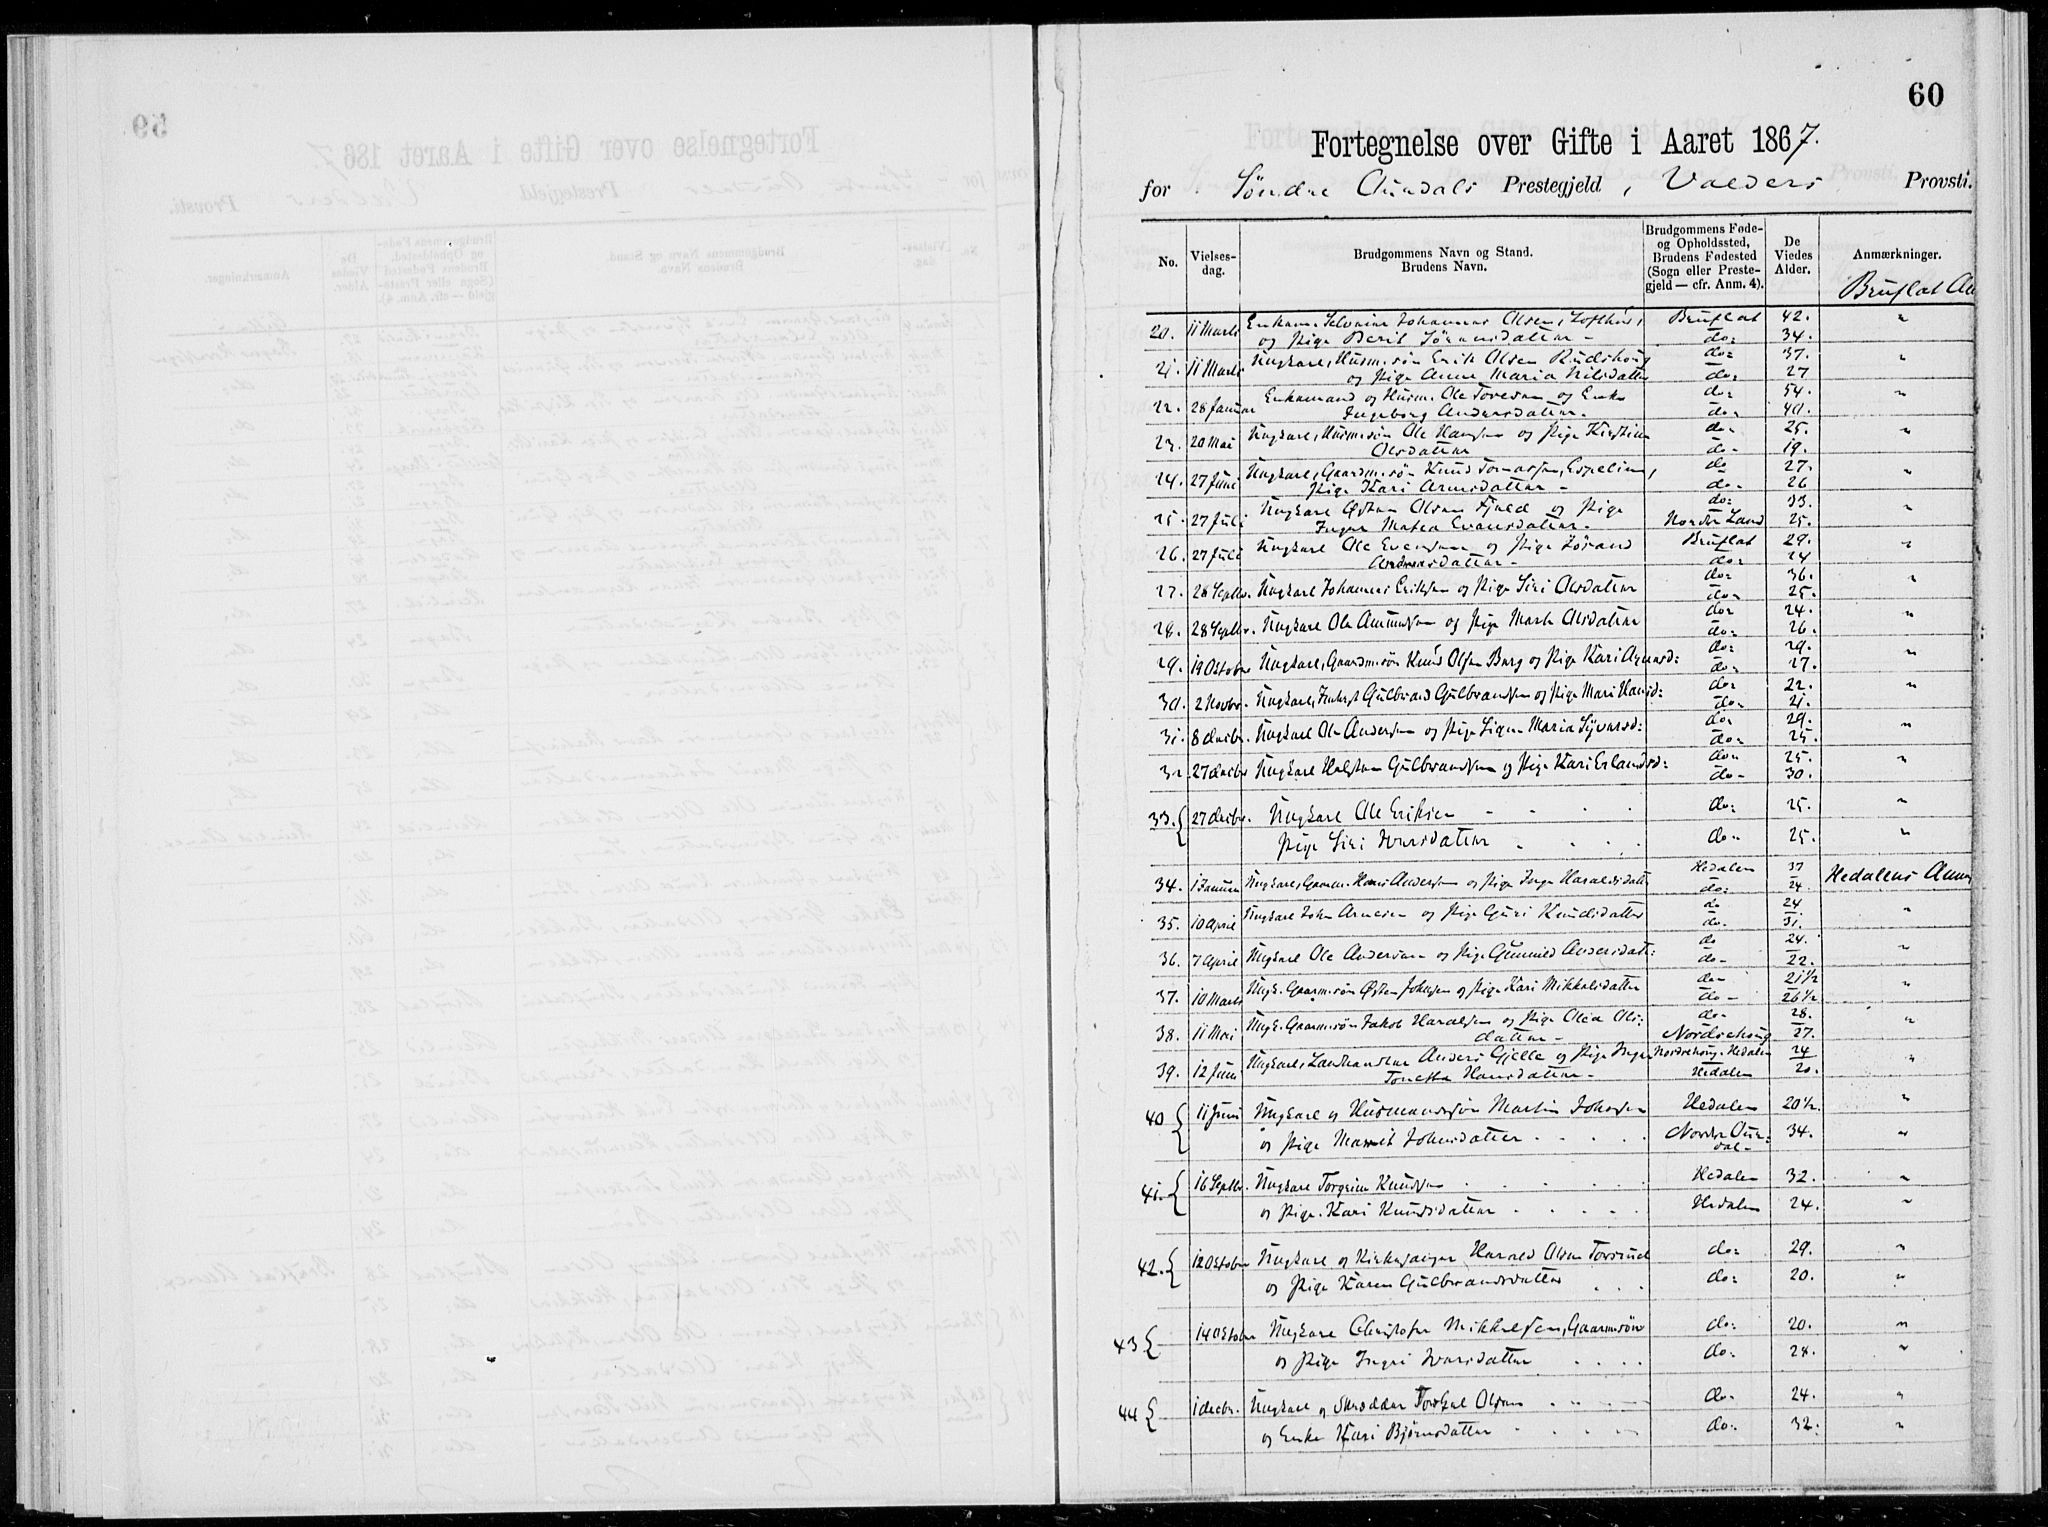 60
Fortegnelse over Gifte i Aaret 1867.
for Søndre Aurdals Prestegjeld, Valders Provsti.
No. Vielses-dag. Brudgommens Navn og Stand. Brudens Navn. Brudgommens Føde- og Opholdssted, Brudens Fødested (Sogn eller Preste-gjeld — cfr. Anm. 4). De Viedes Alder. Anmærkninger.
Bruflat An
20. 11 Marts Enkem. Selveier Johannes Olsen, Lofthus, Bruflat 42. "
og Pige Berit Sørensdatter - do- 34.
21. 11 Marts Ungkarl, Husm.søn Erik Olsen Rudshoug do- 37. "
og Pige Anne Maria Nilsdatter do- 27
22. 28 Januar Enkemand og Husm. Ole Toresen og Enke do- 54. "
Ingeborg Andersdatter. do- 40.
23. 20 Mai Ungkarl, Husm.søn Ole Hansen og Pige Kirstine do- 25. "
Olsdatter do- 19.
24. 27 Juni Ungkarl, Gaardm.søn Knud Tomassen, Espelien, do 27. "
Pige Kari Arnesdatter - do- 26
25. 27 Juli Ungkarl Østen Olsen Fjeld og Pige do- 33. "
Inger Mathea Evensdatter. Nordre Land 25.
26. 27 Juli Ungkarl Ole Evensen og Pige Jørand Bruflat 29. "
Andreasdatter - do- 24
27. 28 Septbr. Ungkarl Johannes Eriksen og Pige Siri Olsdatter do- 36. "
do- 25.
28. 28 Septbr. Ungkarl Ole Amundsen og Pige Marte Olsdatter do- 24. "
do- 26.
29. 19 October Ungkarl, Gaardm.søn Knud Olsen Berg og Pige Kari do- 29. "
do- 27.
30. 2 Novbr. Ungkarl, Gulbrand Gulbrandsen og Pige Mari Hansd: do- 22. "
do- 21.
31. 8 Decbr. Ungkarl Ole Andersen og Pige Signe Maria Syversd: do- 29. "
do- 25.
32. 27 Decbr Ungkarl Halsten Gulbrandsen og Pige Kari Erlandsd: do- 25. "
do- 30.
33. 27 Decbr. Ungkarl Ole Eriksen - do- 25. "
Pige Siri Iversdatter do- 25. "
34. 1 Januar Ungkarl, Gaardm. Hans Andersen og Pige Inge Haraldsdatter Hedalen 37 Hedalens Annex
do- 24.
35. 10 April Ungkarl John Arnesen og Pige Guri Knudsdatter do 24 "
do- 31.
36. 7 April Ungkarl Ole Andersen og Pige Gunnild Andersdatt: do 24. "
do- 22.
37. 10 Marts Ungk. Gaardm.søn Østen Johnsen og Pige Kari Mikkelsdatter do- 21 1/2 "
do- 26 1/2
38. 11 Mai Ungk. Gaardm.søn Jakob Haraldsen og Pige Olea Ols: do- 28. "
datter - Nordrehoug 27.
39. 12 Juni Ungkarl, Landhandler Anders Gjelle og Pige Inger Nordrehoug, Hedalen 24 "
Tonetta Hansdatter - Hedalen 20.
40 11 Juni Ungkarl og Husmandssøn Martin Johnsen Hedalen 20 1/2. "
og Pige Marit Johnsdatter Nordre Aur: dal- 34. "
41. 16 Septbr. Ungkarl Torgrim Knudsen Hedalen 32. "
og Pige Kari Knudsdatter Hedalen 24. "
42. 12 October Ungkarl og Kirkesanger Harald Olsen Torsrud do- 29. "
og Pige Karen Gulbrandsdatter do- 20. "
43 14 October Ungkarl Christofer Mikkelsen, Gaardm.søn do- 20. "
og Pige Ingri Iversdatter do- 28. "
44 1 Decbr. Ungkarl og Skrædder Torkel Olsen do- 24. "
og Enke Kari Bjørnsdatter do- 32. "